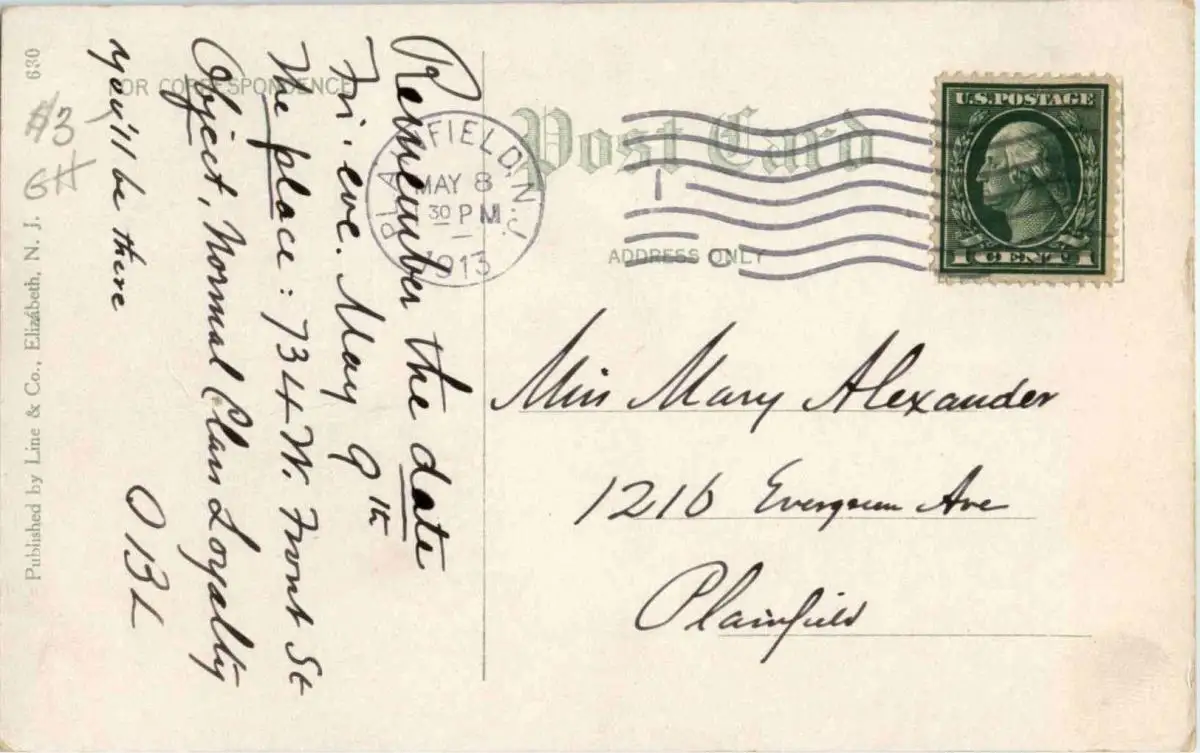 Post Card
FOR CORRESPONDENCE
ADDRESS ONLY
U.S. POSTAGE
1 CENT 1
PLAINFIELD, N.J.
MAY 8
30 PM
1913
Remember the date
Fri. eve. May 9th
The place: 734 W. Front St
Object, Normal Class Loyalty
you'll be there
OBL
Miss Mary Alexander
1216 Evergreen Ave
Plainfield
#3
Published by Line & Co., Elizabeth, N. J. 630